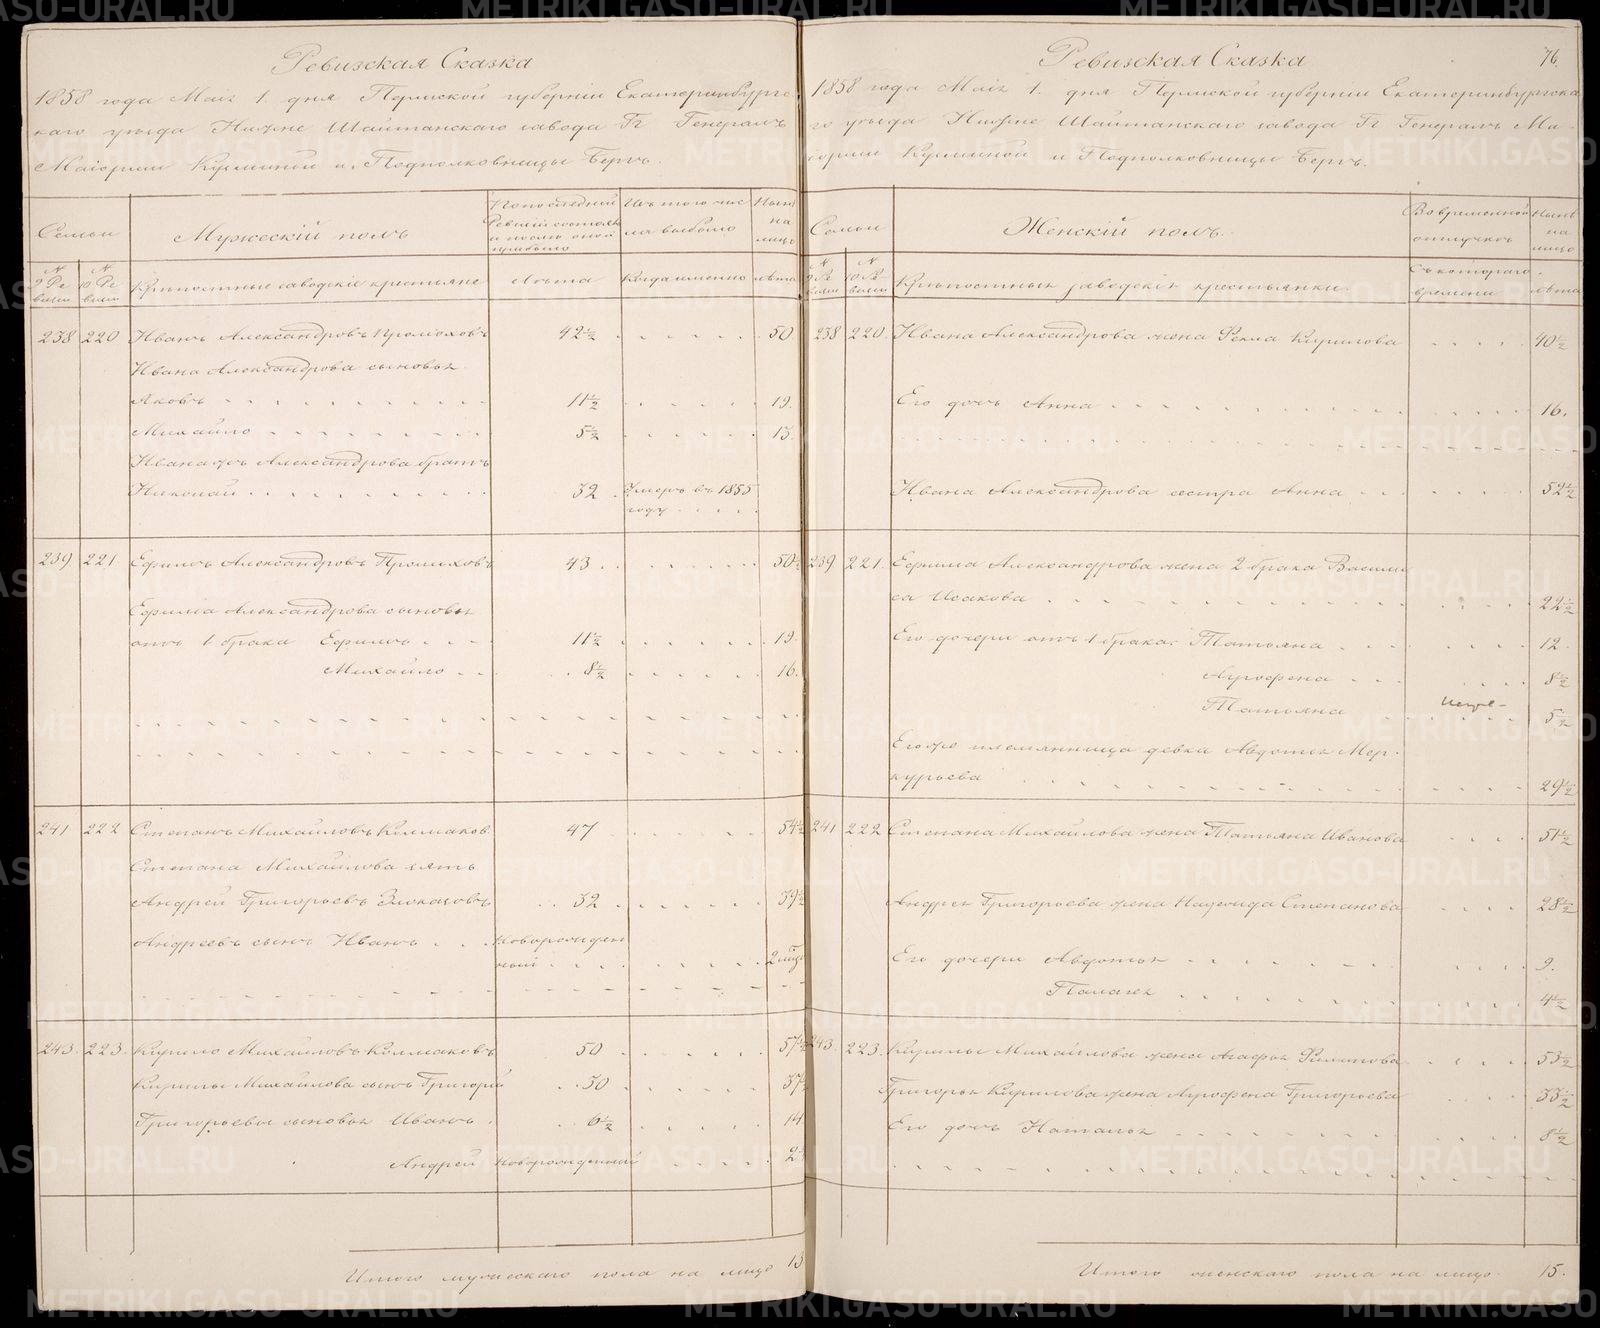 Ревизская Сказка
1858 года Маія 1. дня Пермской губерніи Екатеринбургс-
каго уѣзда Нижне Шайтанскаго завода Гг Генералъ
Маіорши Кузминой и Подполковницы Бергъ.
Семьи
Мужескій полъ
По последней Ревизіи состояло и после оной прибыло
Изъ того числа выбыло
Нынѣ на лицо
№ 9 Ревизіи
№ 10 Ревизіи
Крѣпостные заводскіе крестьяне
Лѣта
Когда именно
лѣта
238 220 Иванъ Александровъ Пролюховъ 42½ 50
Ивана Александрова сыновья
Яковъ 11½ 19.
Михайло 5½ 13.
Ивана же Александрова братъ
Николай 32 Умеръ въ 1855
году
239 221 Ефимъ Александровъ 43 50½
Ефима Александрова сыновья
отъ 1 брака Ефимъ 11½ 19.
Михайло 8½ 16.
241 222 Степанъ Михайловъ Колмаковъ 47 54½
Степана Михайлова зять
Андрей Григорьевъ Злоказовъ 32 39½
Андреевъ сынъ Иванъ Новорожден
ный
243. 223. Кирило Михайловъ Колмаковъ 50 57½
Кирилы Михайлова сынъ Григорій 30 37½
Григорьевы сыновья Иванъ 6½ 14
Андрей Новорожденный 2
Итого мужескаго пола на лицо 13
Ревизская Сказка
76.
1858 года Маія 1. дня Пермской губерніи Екатеринбургска
го уѣзда Нижне Шайтанскаго завода Гг Генералъ Ма-
іорши Кузминой и Подполковницы Бергъ.
Семьи
Женскій полъ.
Во временной отлучкѣ
Нынѣ на лицо
№ 9 Ревизіи
№ 10 Ревизіи
Крѣпостныя заводскія крестьянки.
Съ котораго времени
лѣта
238 220. Ивана Александрова жена Фекла Кирилова 40½
Его дочь Анна 16.
Ивана Александрова сестра Анна 52½
239 221. Ефима Александрова жена 2 брака Васили
са Исакова 22½
Его дочери отъ 1 брака: Татьяна 12.
Аграфена 8½
Татьяна 5½
Его же племянница девка Авдотья Мер-
курьева 29½
241 222. Степана Михайлова жена Татьяна Иванова 51½
Андрея Григорьева жена Надежда Степанова 28½
Его дочери Авдотья 9.
Палагея 4½
243. 223. Кирилы Михайлова жена Агафья Филипова 53½
Григорья Кирилова жена Аграфена Григорьева 33½
Его дочь Наталья 8½
Итого женскаго пола на лицо 15.
METRIKI.GASO-URAL.RU